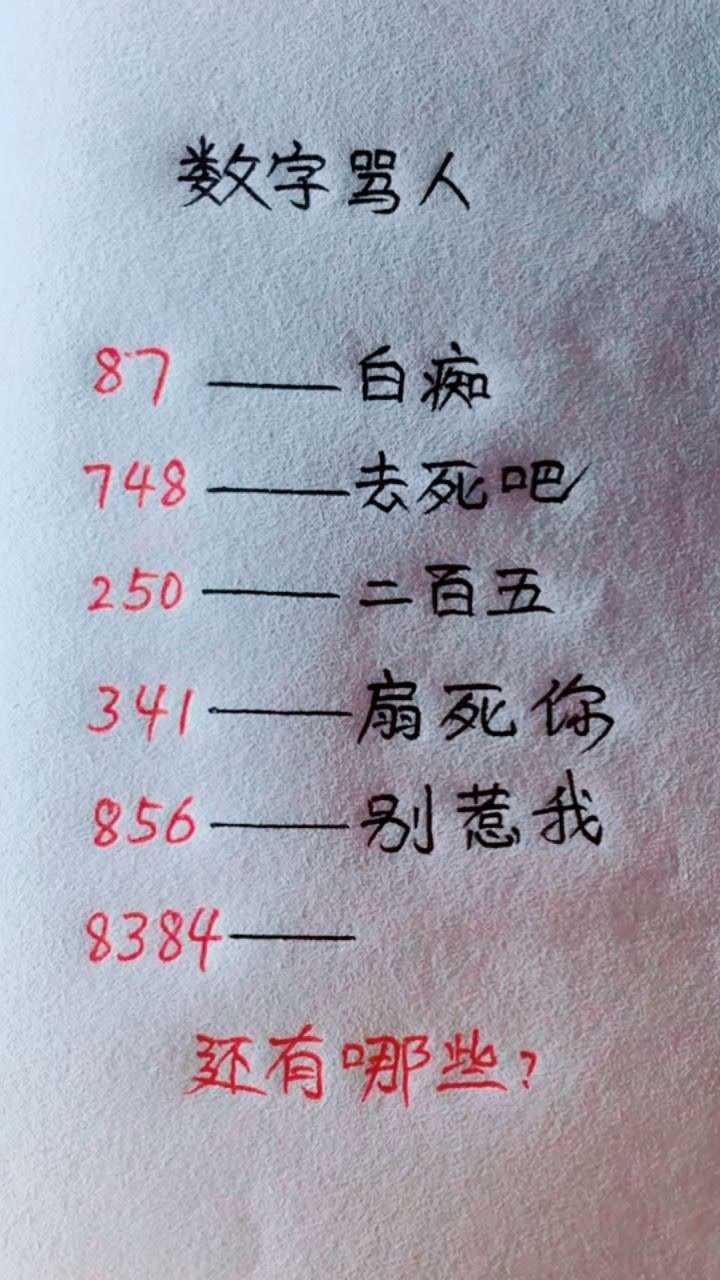 数字骂人
87 —— 白痴
748 —— 去死吧
250 —— 二百五
341 —— 扇死你
856 —— 别惹我
8384 ——
还有哪些?